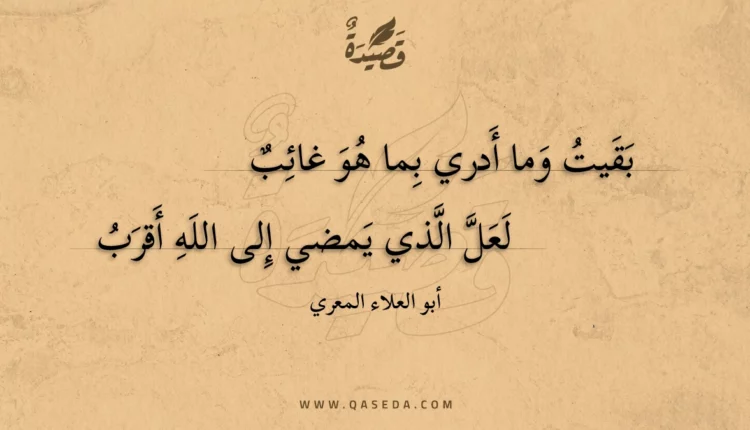 قَصِيدَةٌ
بَقَيتُ وَما أَدري بِما هُوَ غائِبٌ
لَعَلَّ الَّذي يَمضي إِلى اللَهِ أَقرَبُ
أبو العلاء المعري
WWW.QASEDA.COM